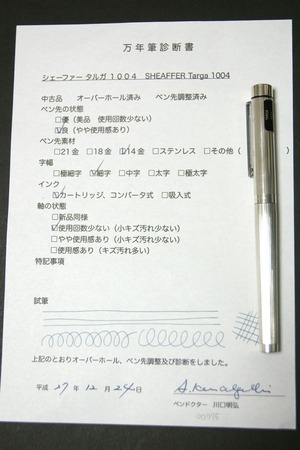 万年筆診断書
シェーファー タルガ 1004 SHEAFFER Targa 1004
中古品 オーバーホール済み ペン先調整済み
ペン先の状態
□優(美品 使用回数少ない)
☑良(やや使用感あり)
ペン先素材
□21金 □18金 ☑14金 □ステンレス □その他( )
字幅
□極細字 ☑細字 □中字 □太字 □極太字
インク
☑カートリッジ、コンバータ式 □吸入式
軸の状態
□新品同様
☑使用回数少ない(小キズ汚れ少ない)
□やや使用感あり(小キズ汚れ少ない)
□使用感あり(キズ汚れ多い)
特記事項
試筆
上記のとおりオーバーホール、ペン先調整及び診断をしました。
平成 27年 12月 24日
ペンドクター 川口明弘